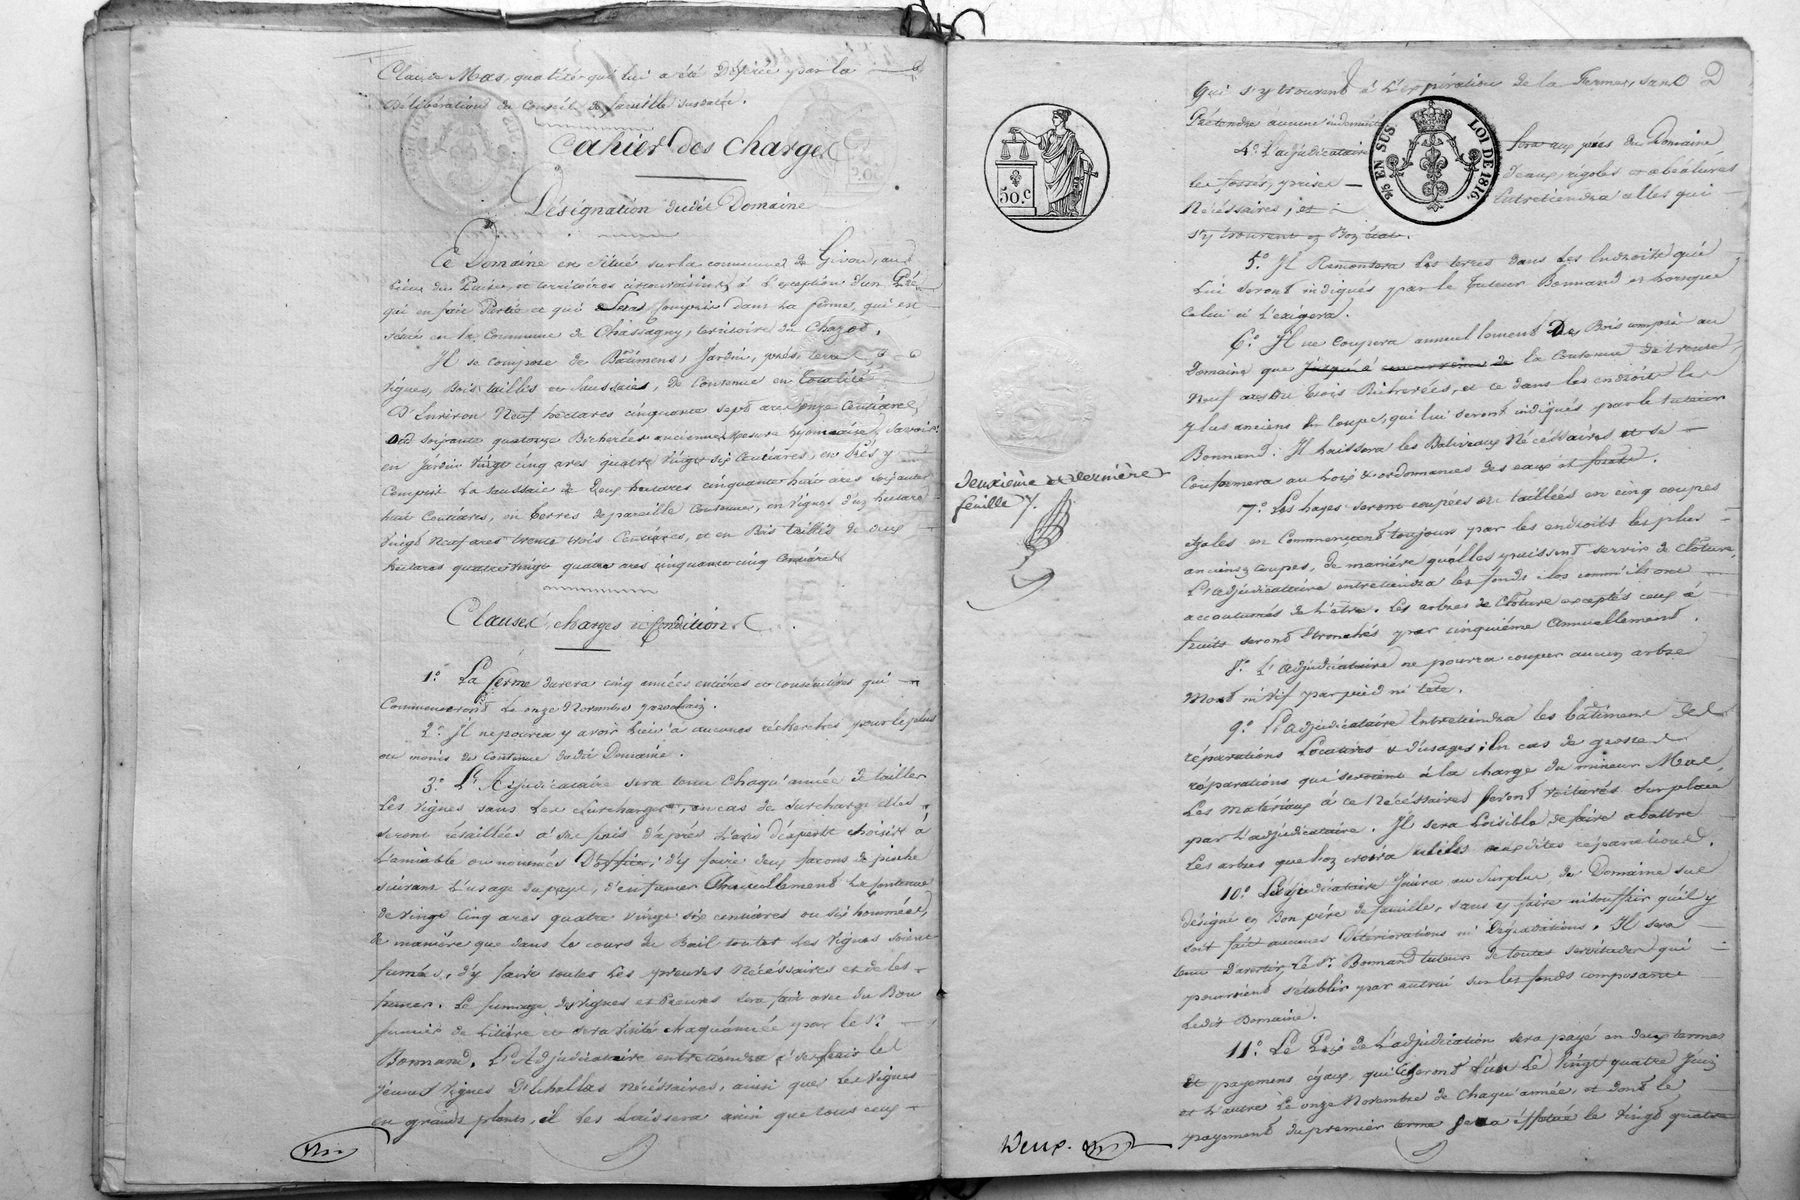 Claude Mas, qualité qui lui a été déférée par la
délibération du Conseil de famille susdatée.
Cahier des Charges
Désignation dudit Domaine
Ce Domaine est situé sur la commune de Givors, au
lieu du et territoires circonvoisins, à l'exception d'un Pré
qui en fait Partie et qui sera compris dans la ferme, qui est
située en la Commune de Chassagny, territoire du Chazot.
Il se compose de Bâtimens, Jardin, prés, terres,
vignes, Bois taillis et saussaies, de Contenue en totalité
D'Environ Neuf hectares cinquante sept ares onze Centiares,
ou soixante quatorze Bicherées anciennes, Mesure Lyonnaise, Savoir:
en Jardin vingt cinq ares quatre vingt six Centiares, en Prés y
Compris La Saussaie de Deux hectares cinquante huit ares soixante
huit Centiares, en terres de pareille Contenue, en vignes d'un hectare
vingt Neuf ares trente trois Centiares, et en Bois taillis de deux
hectares quatre vingt quatre ares cinquante cinq Centiares
Clauses, charges et Conditions.
1.° La ferme durera cinq années entières et consécutives qui
Commenceront Le onze Novembre prochain.
2.° Il ne pourra y avoir Lieu à aucunes recherches pour le plus
ou moins de Contenue dudit Domaine.
3.° L'Adjudicataire sera tenu Chaqu'année de tailler
Les vignes sans Les Surcharger, en cas de Surcharge elles
seront rétaillées à ses frais d'après L'avis d'experts choisis à
L'amiable ou nommés D'office; d'y faire deux façons de pioche
suivant L'usage du pays, d'en fumer annuellement La Contenue
de vingt Cinq ares quatre vingt six centiares ou six hommées,
de manière que dans le cours du Bail toutes Les vignes soient
fumées, d'y faire toutes Les preuves Nécéssaires et de les
fumer. Le fumage des vignes et Preuves sera fait avec du Bon
fumier de Litière et sera visité chaqu'année par le S.r
Bonnand. L'Adjudicataire entretiendra à ses frais les
Jeunes vignes D'échallas nécéssaires, ainsi que les vignes
en grands plants, il Les Laissera ainsi que tous ceux
2
qui s'y trouveront à L'expiration de la Ferme, sans
Prétendre aucune indemnité
4.° L'adjudicataire fera aux prés du Domaine
les fossés, prises d'eaux, rigoles et abéalures
Nécéssaires; et Entretiendra celles qui
s'y trouvent en Bon état.
5.° Il Remontera Les terres dans Les Endroits qui
Lui seront indiqués par le Tuteur Bonnand et lorsque
Celui ci L'éxigera.
6.° Il ne Coupera annuellement De Bois compris au
Domaine que jusqu'à concurrence de la Contenue de trente
neuf ares ou trois Bicherées, et ce dans les endroits les
plus anciens en Coupe, qui lui seront indiqués par le tuteur
Bonnand. Il Laissera les Baliveaux Nécéssaires et se
Conformera au lois & ordonnances des eaux et forets.
7.° Les hayes seront coupées ou taillées en cinq coupes
égales en Commençant toujours par les endroits les plus
anciens coupes, de manière quelles puissent servir de Clôture,
L'adjudicataire entretiendra les fonds clos comme ils ont
accoutumés de L'être. Les arbres de Clôture exceptés ceux à
fruits seront étronchés par cinquième annuellement.
8.° L'adjudicataire ne pourra couper aucun arbre
Mort ni vif par pied ni tête.
9.° L'adjudicataire Entretiendra les bâtimens des
réparations Locatives & d'usages; En cas de grosses
réparations qui seroient à la charge du mineur Mas,
Les matériaux à ce Nécéssaires seront voiturés sur place
par L'adjudicataire. Il sera Loisible de faire abattre
Les arbres que l'on croira utiles auxdites réparations.
10.° L'adjudicataire Jouira au Surplus du Domaine sus
désigné en Bon père de famille, sans y faire ni souffrir qu'il y
soit fait aucunes Détériorations ni Dégradations. Il sera
tenu D'avertir, Le S.r Bonnand tuteur de toutes servitudes qui
pourroient s'établir par autrui sur les fonds composant
Ledit Domaine.
11.° Le Prix de L'adjudication sera payé en deux termes
et payemens égaux, qui écherront l'un Le Vingt quatre Juin
et L'autre Le onze Novembre de Chaqu'année, et dont le
payement du premier terme sera effectué le vingt quatre
50.c
25 EN SUS.
LOI DE 1816.
deuxième et dernière
feuille
Deux.